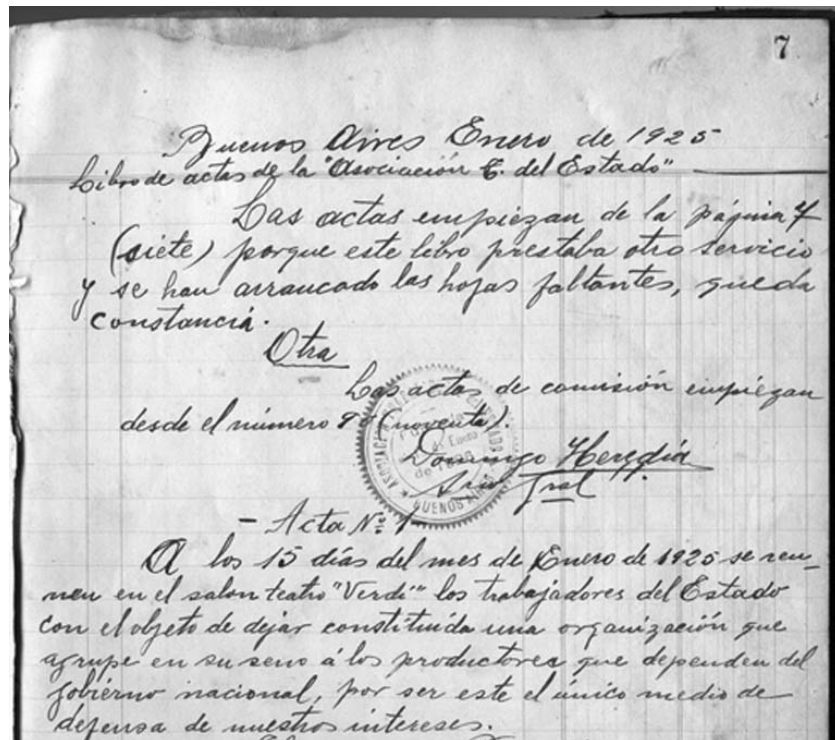 7
Buenos Aires Enero de 1925
Libro de actas de la "Asociación T. del Estado"
Las actas empiezan de la página 7
(siete) porque este libro prestaba otro servicio
y se han arrancado las hojas faltantes, queda
constancia.
Otra
Las actas de comisión empiezan
desde el número 90 (noventa).
Domingo Heredia
Srio Gral
BUENOS AIRES
- Acta Nº 1 -
A los 15 días del mes de Enero de 1925 se reu-
nen en el salon teatro "Verdi" los trabajadores del Estado
con el objeto de dejar constituída una organización que
agrupe en su seno á los productores que dependen del
gobierno nacional, por ser este el único medio de
defensa de nuestros intereses.